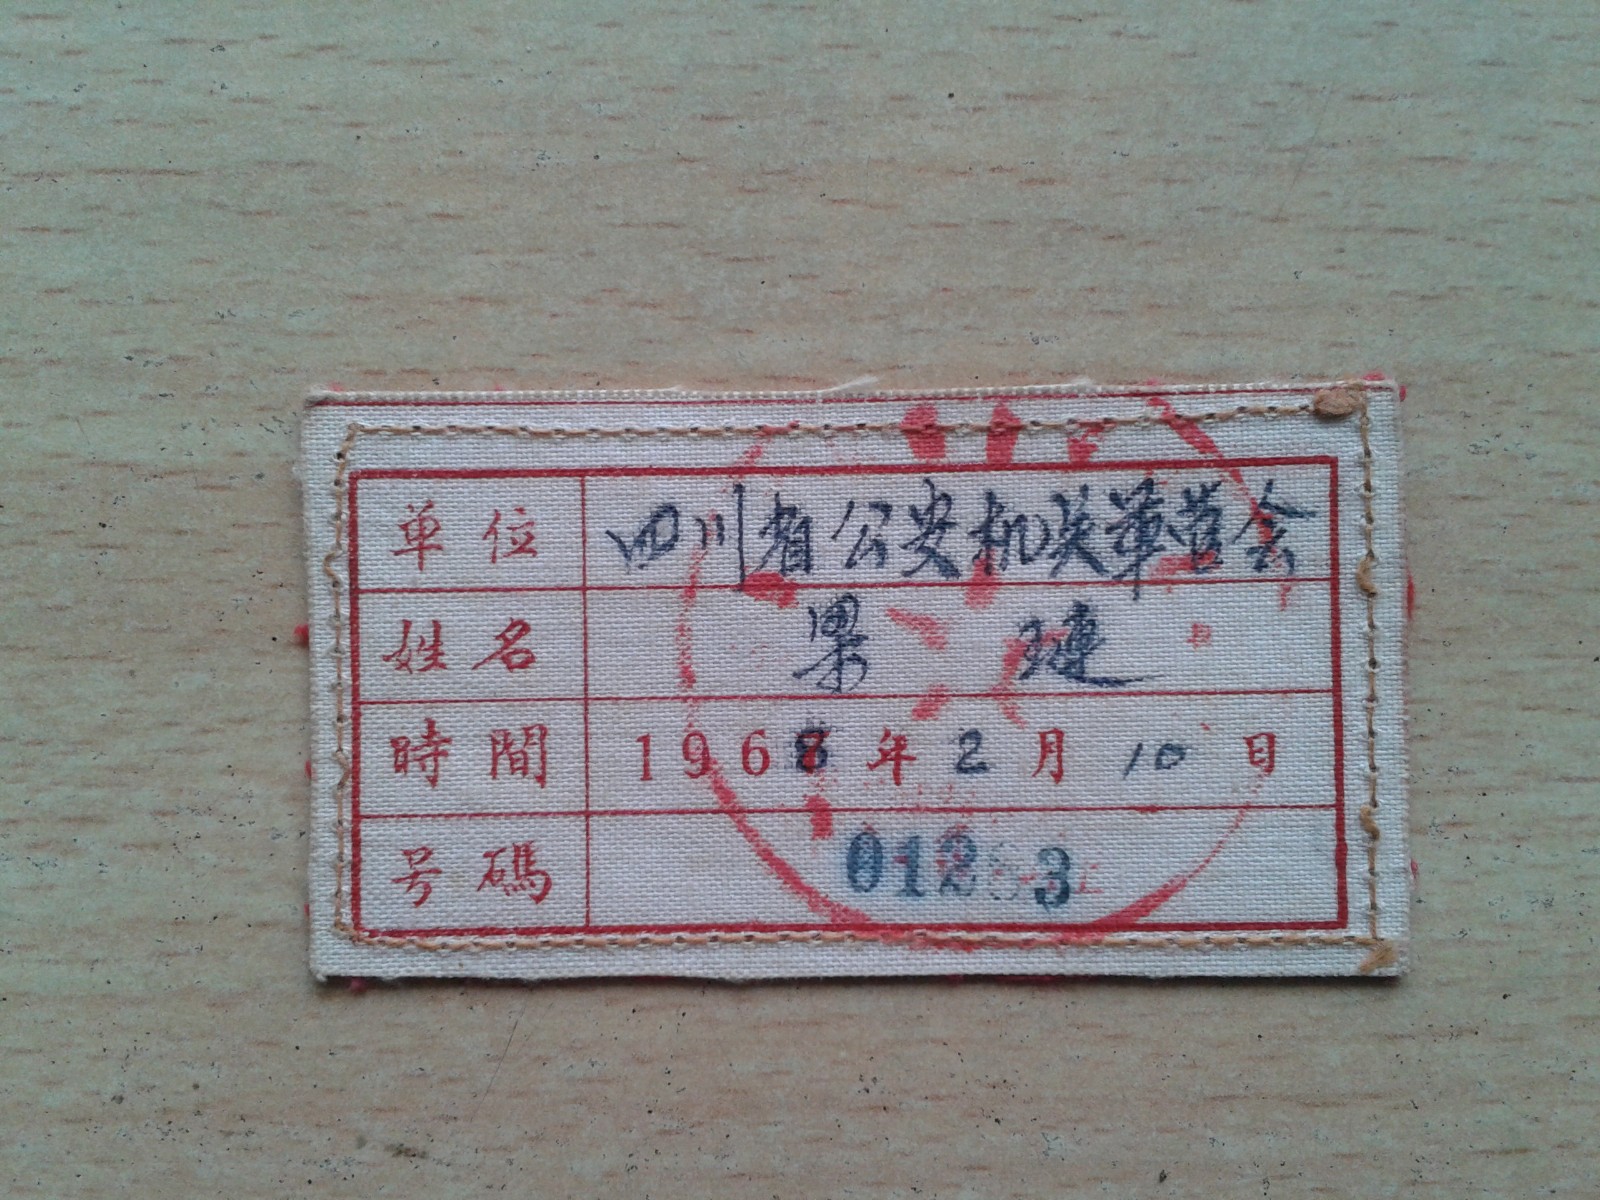 单位 四川省公安机关革菅会
姓名 果 琏
時間 1968年2月10日
号碼 01253